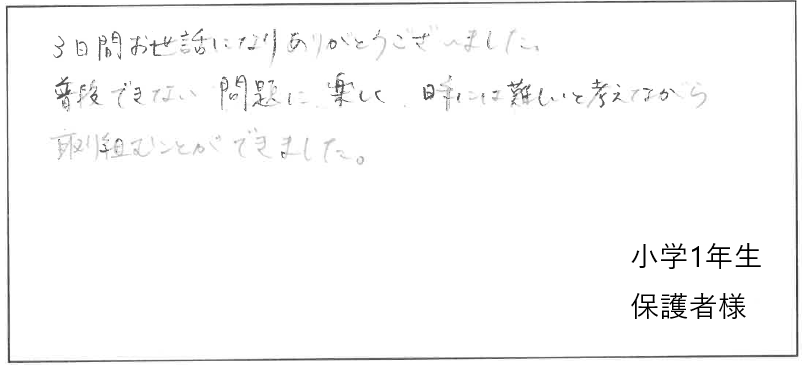 3日間お世話になりありがとうございました。
普段できない問題に楽しく、時には難しいと考えながら
取り組むことができました。
小学1年生
保護者様